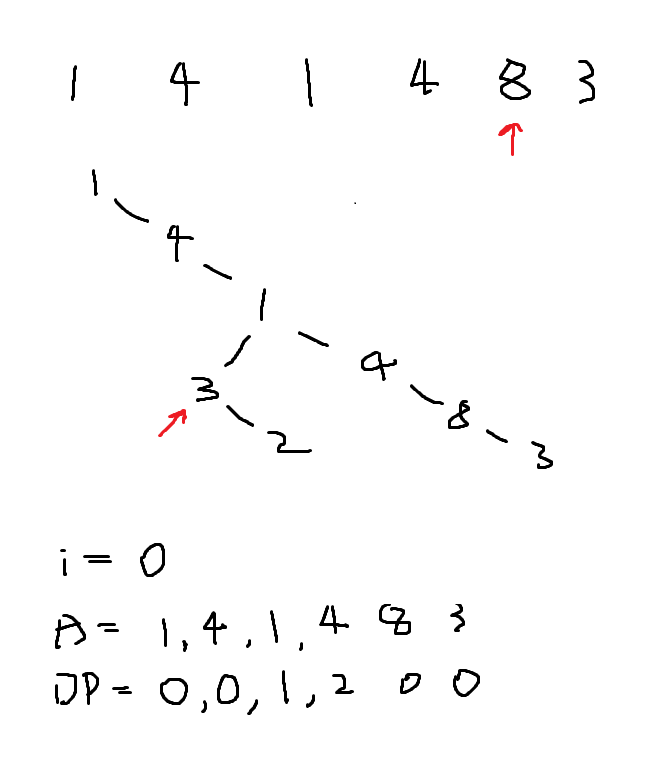 1 4 1 4 8 3
1
4
1
3 4
8
2 3
i = 0
A = 1, 4, 1, 4 8 3
DP = 0, 0, 1, 2 0 0